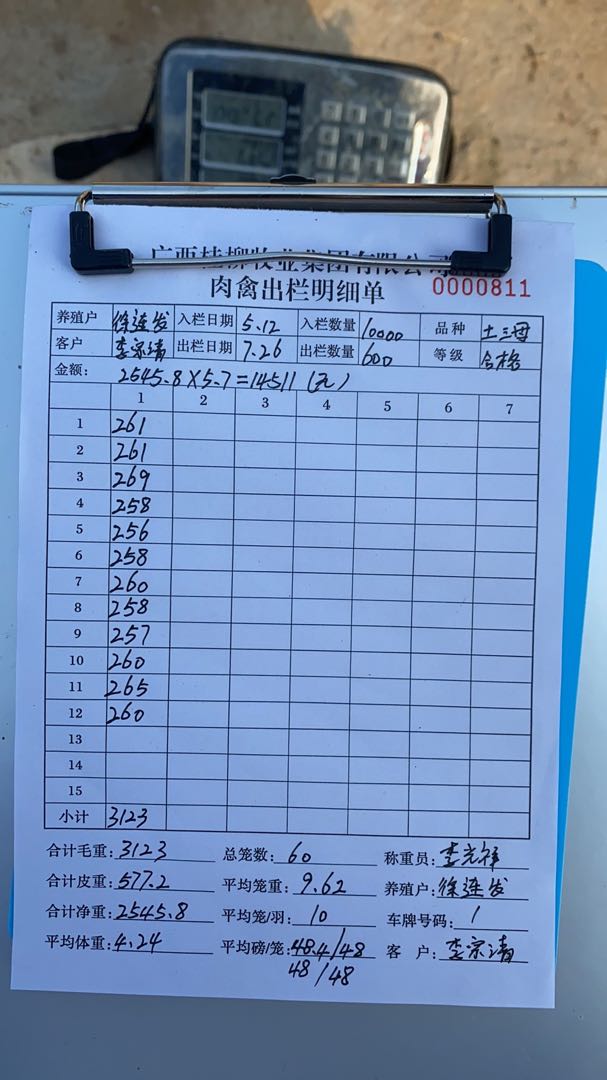 广西桂柳牧业集团有限公司
肉禽出栏明细单 0000811
养殖户 徐连发 入栏日期 5.12 入栏数量 10000 品种 土三母
客户 李宗清 出栏日期 7.26 出栏数量 600 等级 合格
金额: 2545.8×5.7=14511(元)
1 2 3 4 5 6 7
1 261
2 261
3 269
4 258
5 256
6 258
7 260
8 258
9 257
10 260
11 265
12 260
13
14
15
小计 3123
合计毛重:3123 总笼数:60 称重员:李光祥
合计皮重:577.2 平均笼重:9.62 养殖户:徐连发
合计净重:2545.8 平均笼/羽:10 车牌号码:/
平均体重:4.24 平均磅/笼:48.4/48 客 户:李宗清
48/48